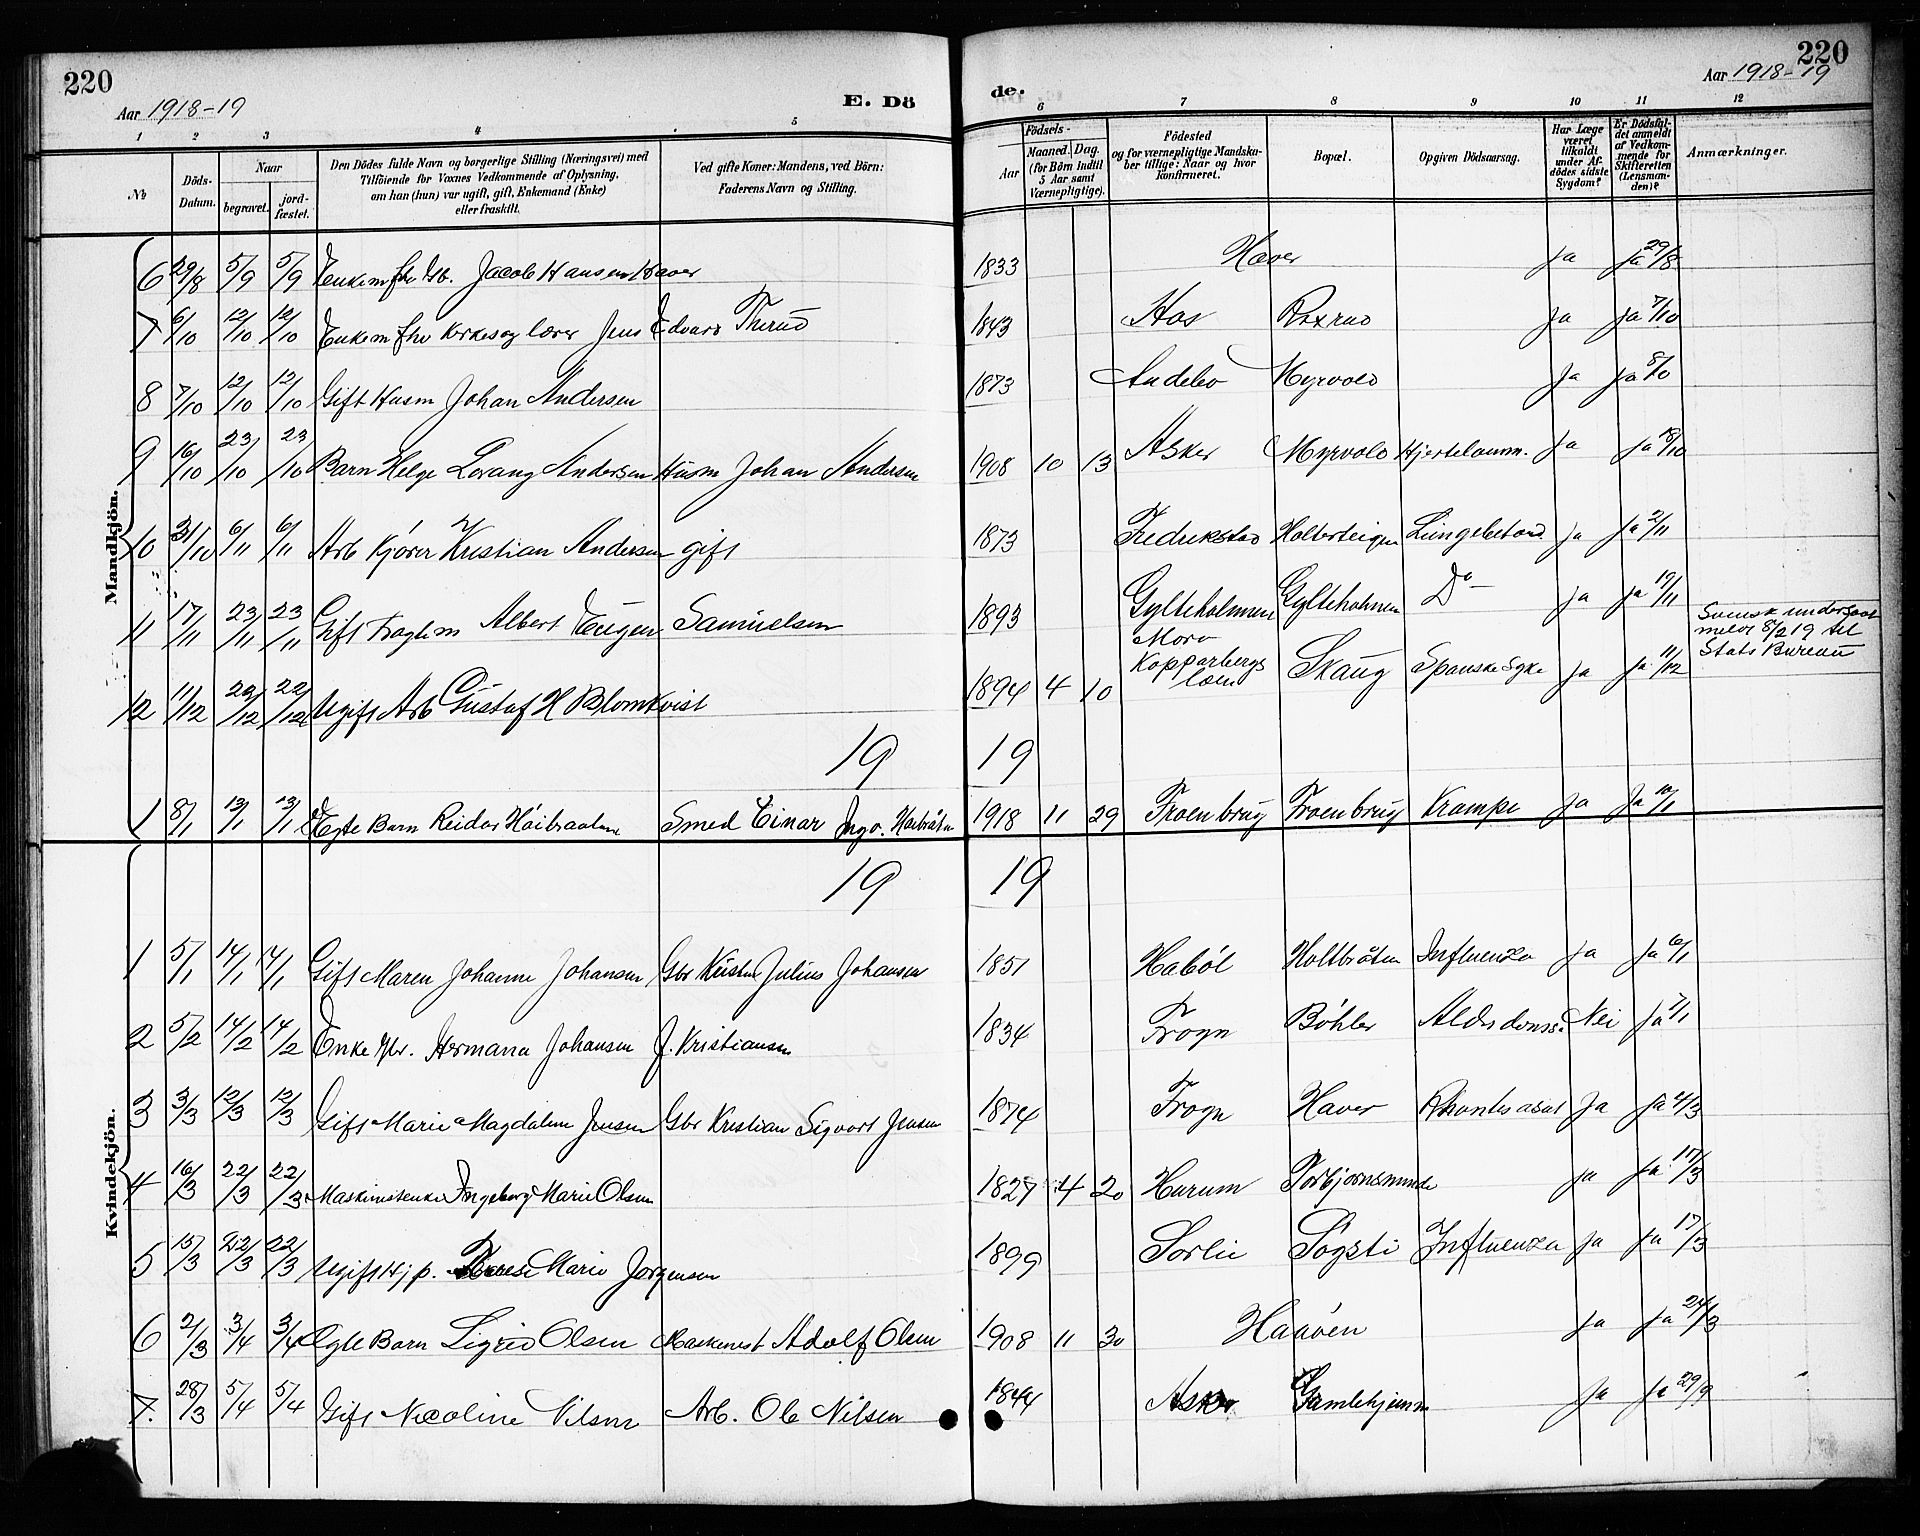 220
220
Aar 1918-19
E. Dö
de.
Aar 1918-19
1 2 3 4 5 6 7 8 9 10 11 12
№
Döds-Datum.
Naar
begravet.
jord-fæstet.
Den Dödes fulde Navn og borgerlige Stilling (Næringsvei) med
Tilföiende for Voxnes Vedkommende af Oplysning,
om han (hun) var ugift, gift, Enkemand (Enke)
eller fraskilt.
Ved gifte Koner: Mandens, ved Börn:
Faderens Navn og Stilling.
Födsels-
Aar
Maaned. Dag.
(for Börn indtil
5 Aar samt
Værnepligtige).
Födested
og for værnepligtige Mandska-
ber tillige: Naar og hvor
konfirmeret.
Bopæl.
Opgiven Dödsaarsag.
Har Læge
været
tilkaldt
under Af-
dödes sidste
Sygdom?
Er Dödsfal-
det anmeldt
af Vedkom-
mende for
Skifteretten
(Lensman-
den)?
Anmærkninger.
Mandkjön.
6 29/8 5/9 5/9 Enkem fhv Gb. Jacob Hansen Haver 1833 Haver Ja Ja 29/8
7 6/10 12/10 12/10 Enkem fhv Kirkesog lærer Jens Edvard Therud 1843 Aas Roxrud Ja Ja 7/10
8 7/10 12/10 12/10 Gift Husm Johan Andersen 1873 Andebo Myrvold Ja Ja 8/10
9 16/10 23/10 23/10 Barn Helge Lorang Andersen Husm Johan Andersen 1908 10 13 Asker Myrvold Hjertelamm. Ja Ja 18/10
10 31/10 6/11 6/11 Arb Kjörer Kristian Andersen gift 1873 Fredrikstad Holterteigen Lungebetænd Ja Ja 2/11
11 17/11 23/11 23/11 Gift Albert Eugen Samuelsen 1893 Gylteholmen Gylteholmen Do — Ja Ja 19/11
12 11/12 22/12 22/12 Ugift Arb Gustaf H Blomkvist 1894 4 10 Mora Kopparbergs læn Skaug Spanske Syke Ja Ja 11/12 Svensk undersaat meldt 8/2 19 til Stats Bureau
19 19
1 8/1 13/1 13/1 Egte Barn Reidar Höibraaten Smed Einar Ingv. Höibråten 1918 11 29 Froenbrug Froenbrug Krampe Ja Ja 10/1
Kvindekjön.
19 19
1 5/1 14/1 14/1 Gift Maren Johanne Johansen Gbr Kristen Julius Johansen 1851 Haböl Holtbråten Influenza Ja Ja 6/1
2 5/2 14/2 14/2 Enke Hermana Johansen J. Kristiansen 1834 Frogn Böhler Alderdomss. Nei Ja 7/1
3 3/3 12/3 12/3 Gift Marie Magdalene Jensen Gbr Kristian Sigvart Jensen 1874 Frogn Haver Ja Ja 4/3
4 16/3 22/3 22/3 Maskinistenke Ingeborg Marie Olsen 1827 4 20 Hurum Torbjörnsminde Ja Ja 17/3
5 15/3 22/3 22/3 Ugift Hjp. Therese Marie Jorgensen 1899 Sorlie Sogsti Influenza Ja Ja 17/3
6 21/3 3/4 3/4 Egte Barn Sigrid Olsen Maskenist Adolf Olsen 1908 11 30 Haaöen Ja Ja 24/3
7. 28/3 5/4 5/4 Gift Nicoline Nilsen Arb. Ole Nilsen 1844 Asker Gamlehjemm Ja Ja 29/9